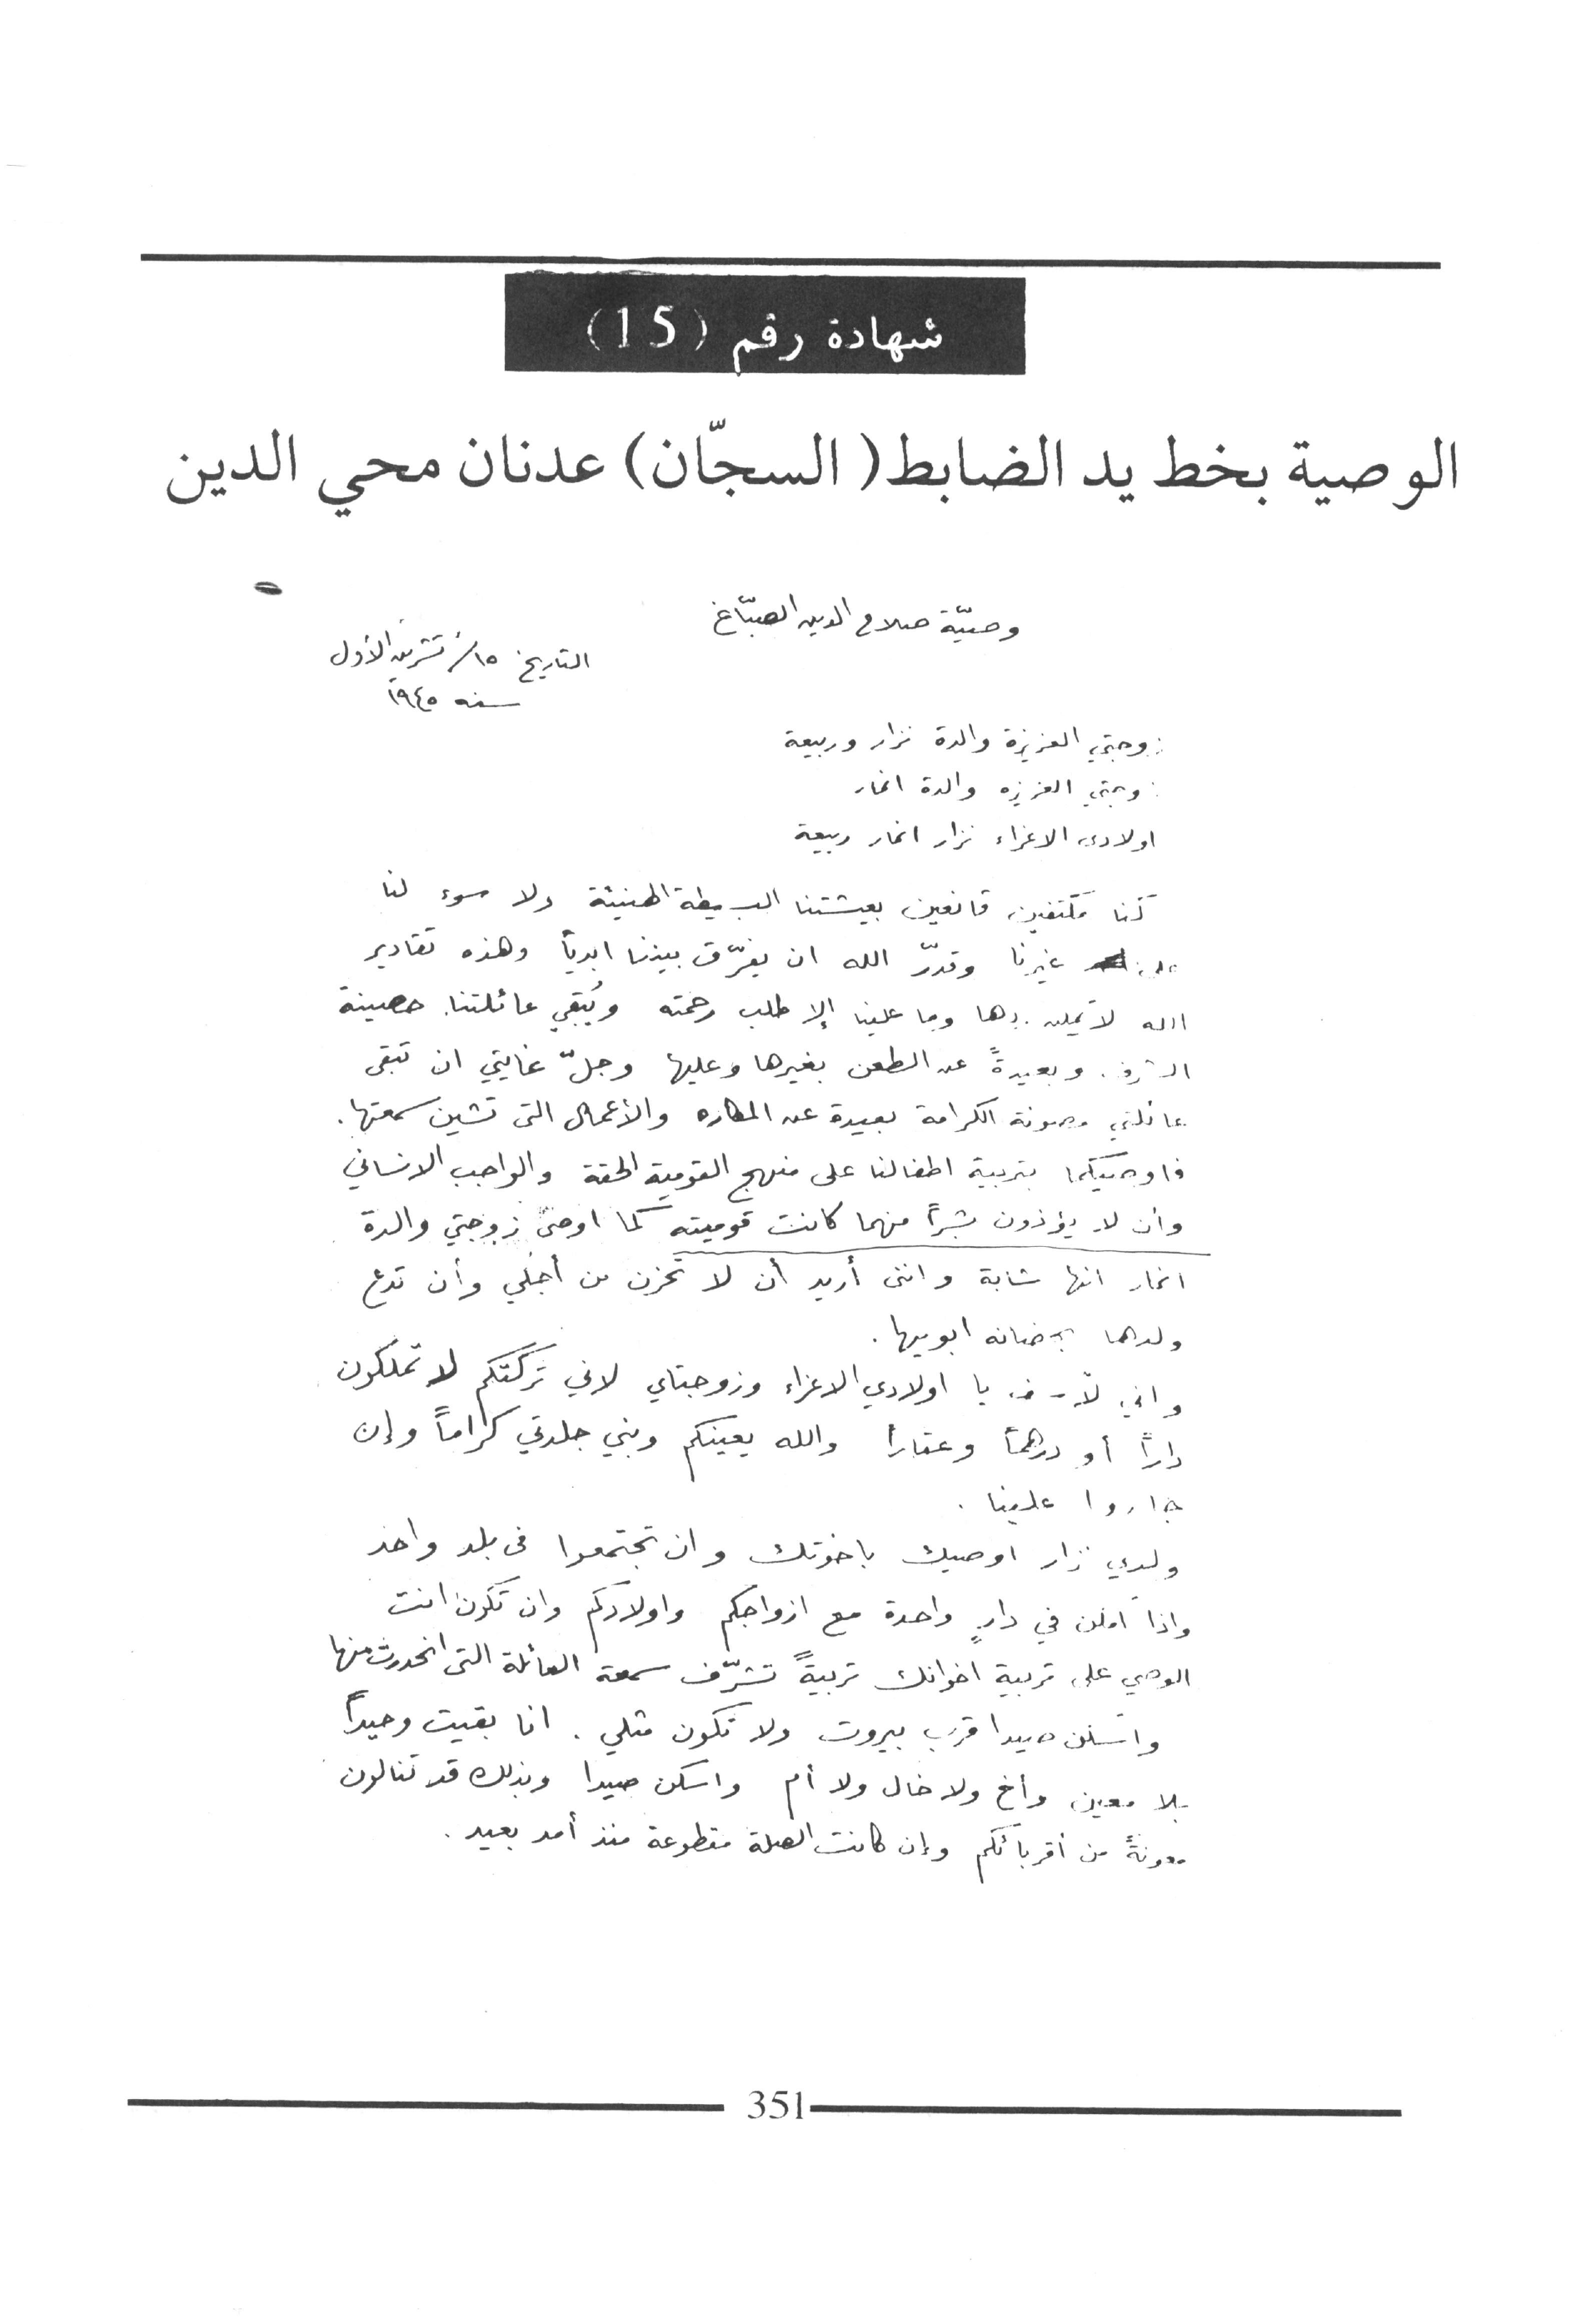 شهادة رقم (15)
الوصية بخط يد الضابط (السجّان) عدنان محي الدين
وصيّة صلاح الدين الصبّاغ
التاريخ ١٥/ تشرين الأول
سنه ١٩٤٥
زوجتي العزيزة والدة نزار وربيعة
زوجتي العزيزه والدة انمار
اولادي الاعزاء نزار انمار ربيعة
كنا مكتفين قانعين بعيشتنا البسيطة الهنيئة ولا سوء لنا
على غيرنا وقدّر الله ان يفرّق بيننا ابدياً وهذه تقادير
الله لا يمكن ردها وما علينا إلا طلب رحمته ويُبقي عائلتنا حصينة
الشرف وبعيدةً عن الطعن بغيرها وعليها وجلّ غايتي ان تبقى
عائلتي مصونة الكرامة بعيدة عن المكاره والأعمال التي تشين سمعتها.
فاوصيكما بتربية اطفالنا على منهج القومية الحقة والواجب الانساني
وأن لا يؤذون بشراً مهما كانت قوميته كما اوصي زوجتي والدة
انمار انها شابة وانني أريد أن لا تحزن من أجلي وأن تدع
ولدها بحضانه ابويها.
واني لآسف يا اولادي الاعزاء وزوجتاي لاني تركتكم لا تملكون
داراً أو درهماً وعقاراً والله يعينكم وبني جلدتي كراماً وإن
جاروا علينا.
ولدي نزار اوصيك باخوتك وان تجتمعوا في بلد واحد
واذا امكن في دارٍ واحدة مع ازواجكم واولادكم وان تكون انت
الوصي على تربية اخوانك تربيةً تشرّف سمعة العائلة التي انحدرت منها
واسكن صيدا قرب بيروت ولا تكون مثلي. انا بقيت وحيداً
بلا معين وأخ ولا خال ولا أم واسكن صيدا وبذلك قد تنالون
معونةً من أقربائكم وإن كانت الصلة مقطوعة منذ أمد بعيد.
351